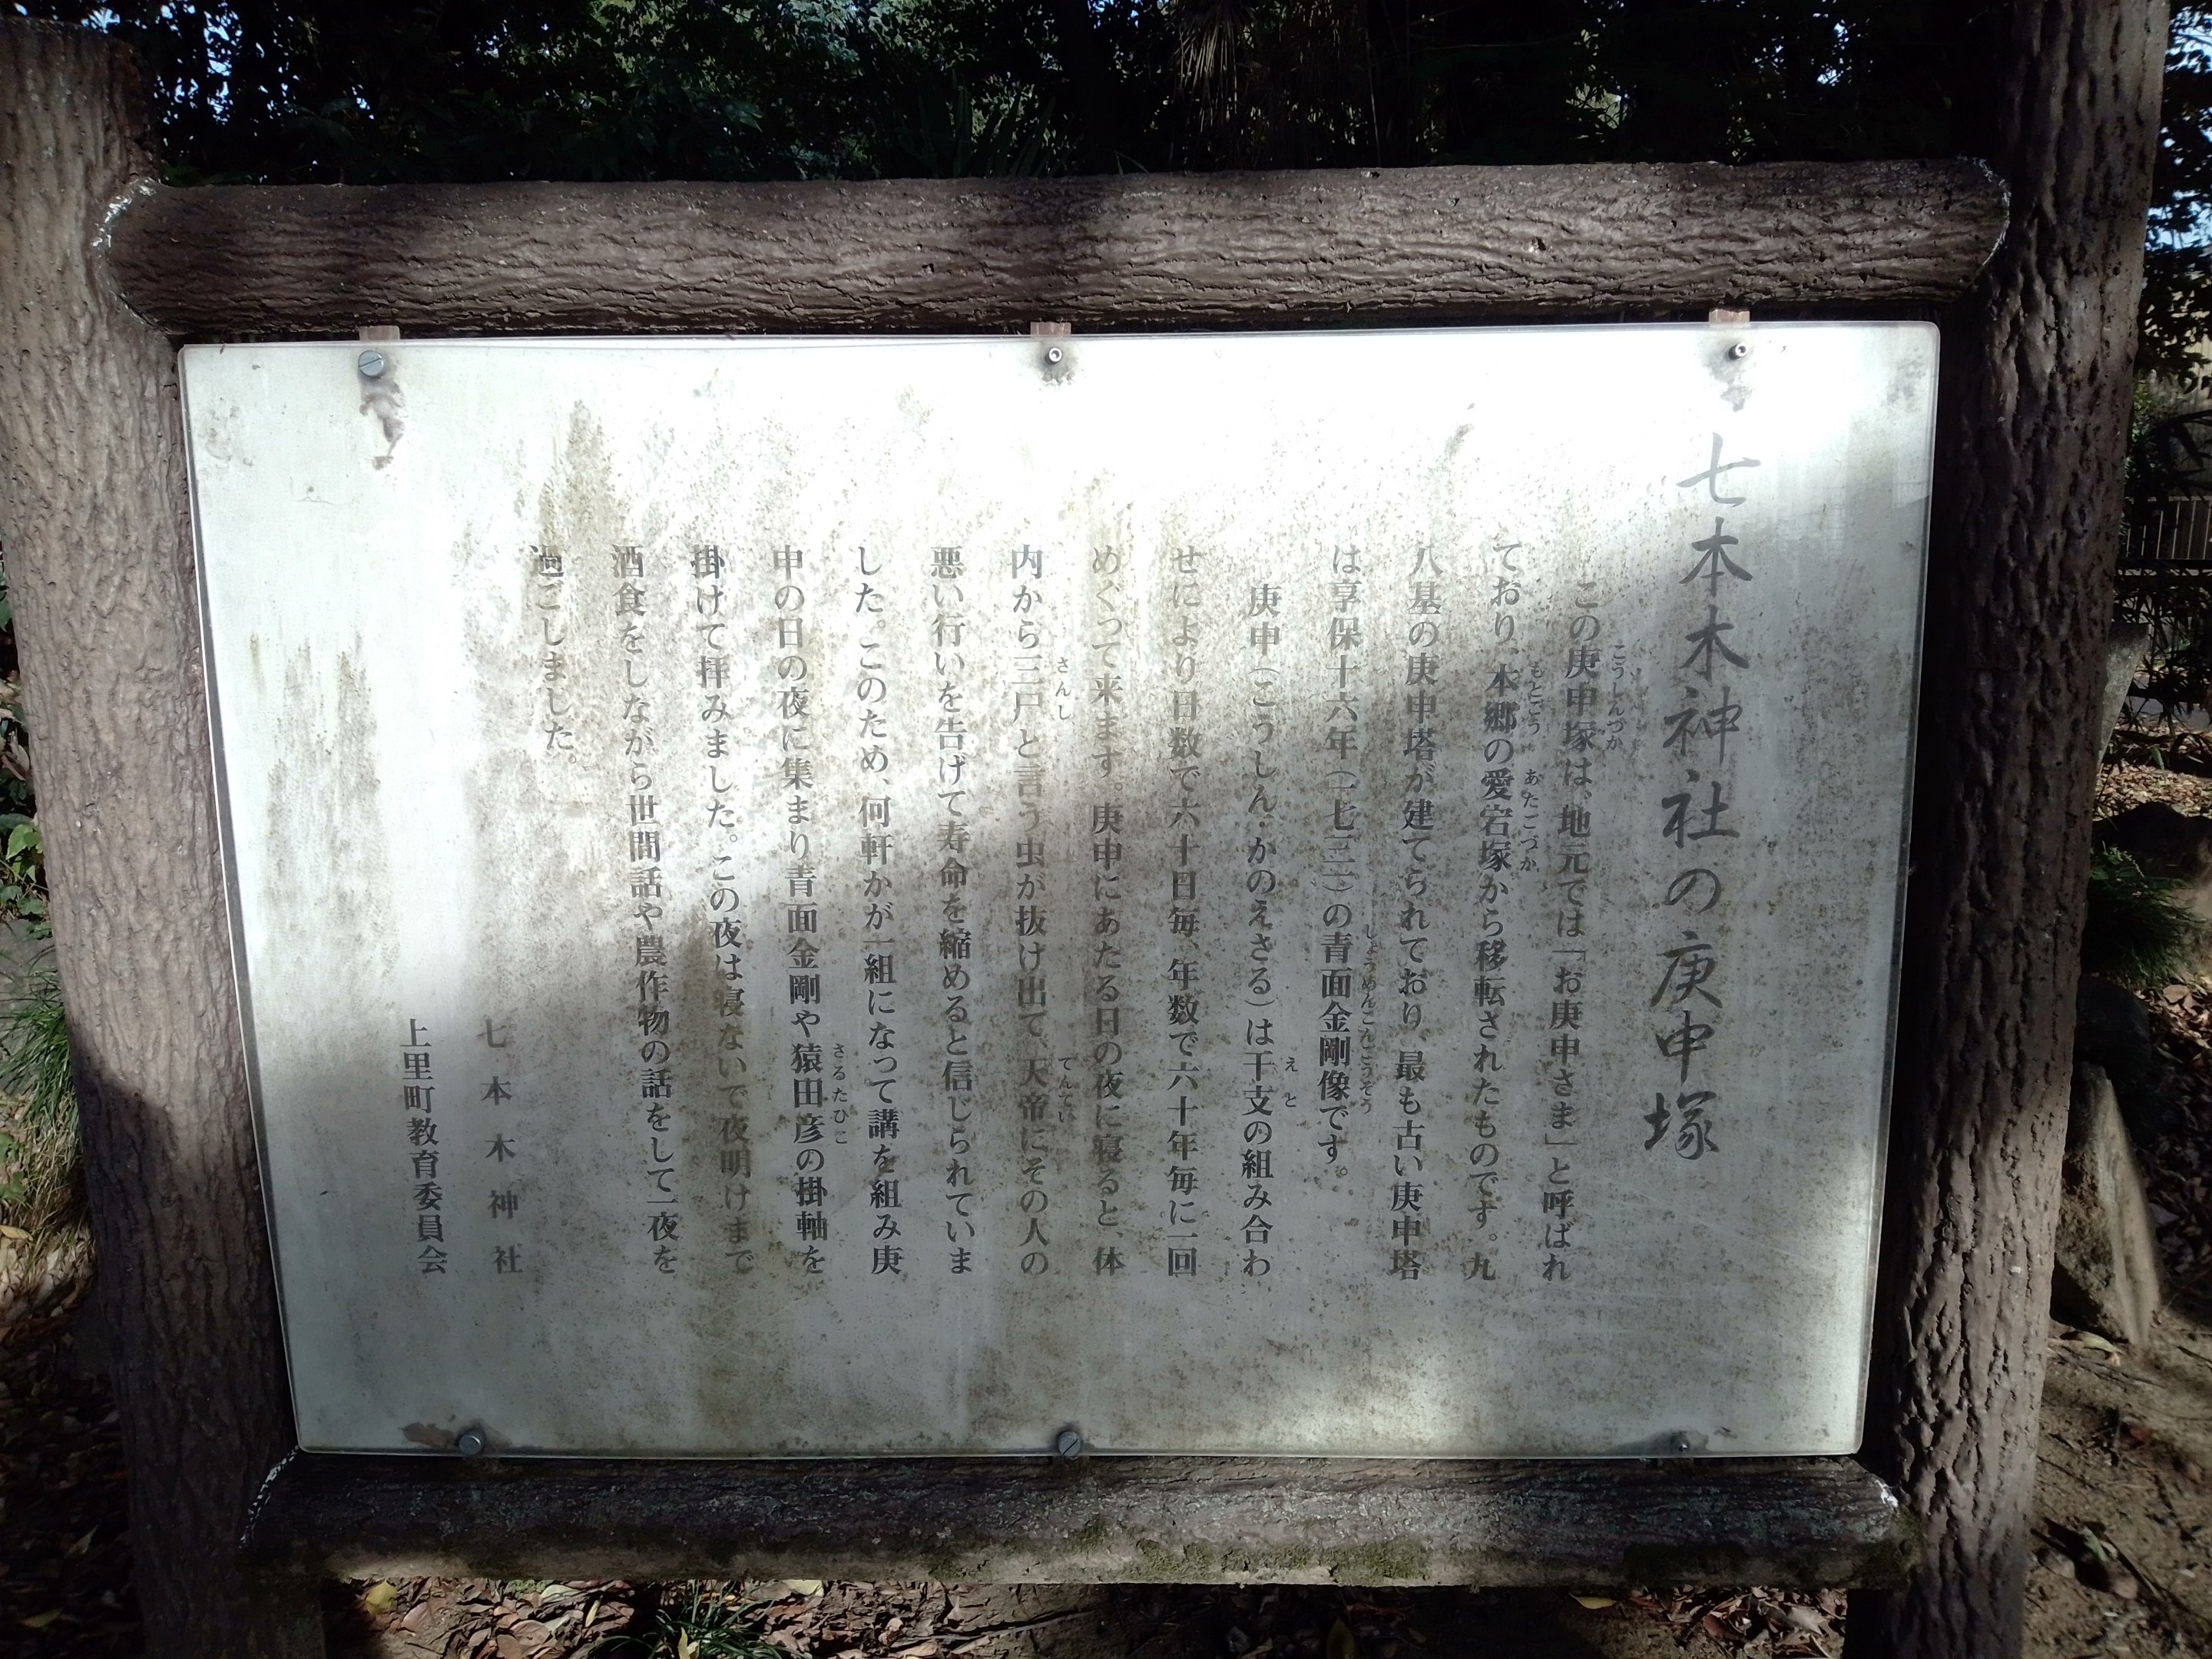 七本木神社の庚申塚
この庚申塚は、地元では「お庚申さま」と呼ばれ
ており、本郷の愛宕塚から移転されたものです。九
八基の庚申塔が建てられており、最も古い庚申塔
は享保十六年(一七三一)の青面金剛像です。
庚申(こうしん・かのえさる)は干支の組み合わ
せにより日数で六十日毎、年数で六十年毎に一回
めぐって来ます。庚申にあたる日の夜に寝ると、体
内から三尸と言う虫が抜け出て、天帝にその人の
悪い行いを告げて寿命を縮めると信じられていま
した。このため、何軒かが一組になって講を組み庚
申の日の夜に集まり青面金剛や猿田彦の掛軸を
掛けて拝みました。この夜は寝ないで夜明けまで
酒食をしながら世間話や農作物の話をして一夜を
過ごしました。
七本木神社
上里町教育委員会